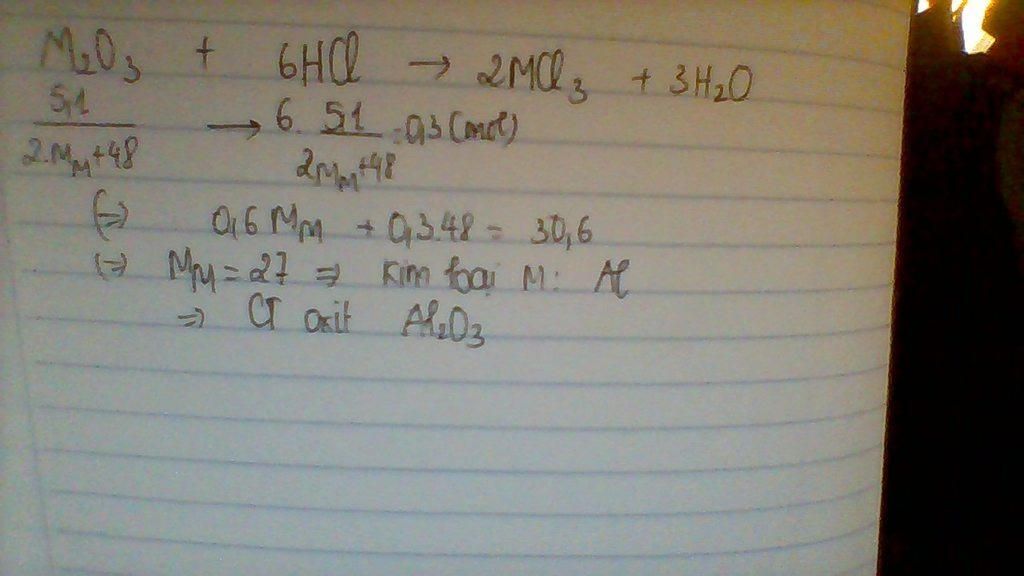 M₂O₃ + 6HCl → 2MCl₃ + 3H₂O
5,1/(2.M_M+48) → 6. 5,1/(2M_M+48) = 0,3 (mol)
(=) 0,6 M_M + 0,3.48 = 30,6
(=) M_M = 27 => Kim loại M: Al
=> CT oxit Al₂O₃